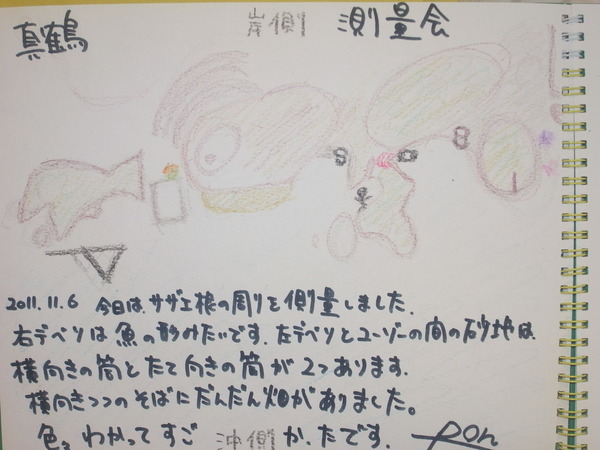 真鶴 岸側 測量会
2011.11.6 今日は、サザエ根の周りを側量しました。
右デベソは魚の形みたいです。左デベソとユーゾーの間の砂地は、
横向きの筒とたて向きの筒が2つあります。
横向きつつのそばにだんだん畑がありました。
色々わかってすご 沖側 かったです。 pon